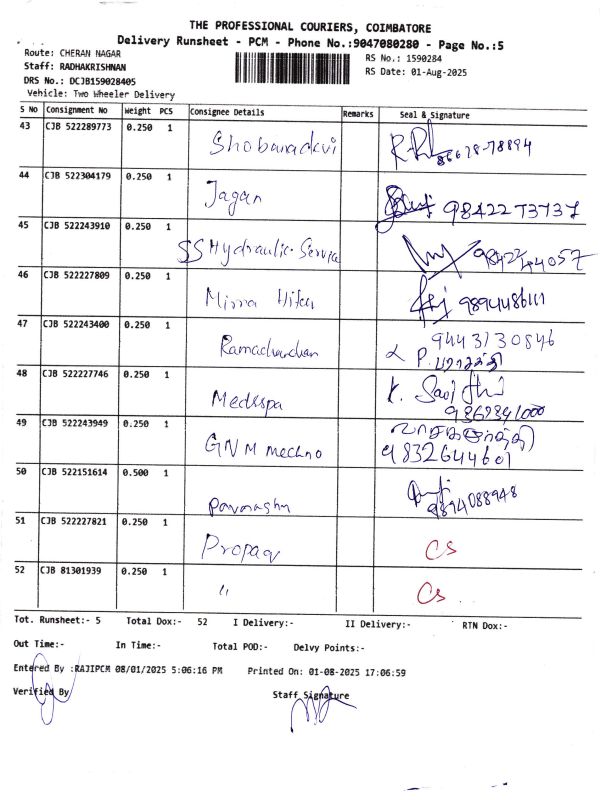 THE PROFESSIONAL COURIERS, COIMBATORE
Delivery Runsheet - PCM - Phone No.:9047080280 - Page No.:5
Route: CHERAN NAGAR
RS No.: 1590284
Staff: RADHAKRISHNAN
RS Date: 01-Aug-2025
DRS No.: DCJB159028405
Vehicle: Two Wheeler Delivery
S No Consignment No Weight PCS Consignee Details Remarks Seal & Signature
43 CJB 522289773 0.250 1 Shobanadevi 86678-78894
44 CJB 522304179 0.250 1 Jagan 98422 73737
45 CJB 522243910 0.250 1 SS Hydraulic Service 98422 44057
46 CJB 522227809 0.250 1 9894486111
47 CJB 522243400 0.250 1 Ramachandran 9443730846
48 CJB 522227746 0.250 1 Medsspa K.
49 CJB 522243949 0.250 1 GNM mechno
9832644601
50 CJB 522151614 0.500 1 9894088948
51 CJB 522227821 0.250 1 CS
52 CJB 81301939 0.250 1 " CS
Tot. Runsheet:- 5 Total Dox:- 52 I Delivery:- II Delivery:- RTN Dox:-
Out Time:- In Time:- Total POD:- Delvy Points:-
Entered By :RAJIPCM 08/01/2025 5:06:16 PM Printed On: 01-08-2025 17:06:59
Verified By Staff Signature